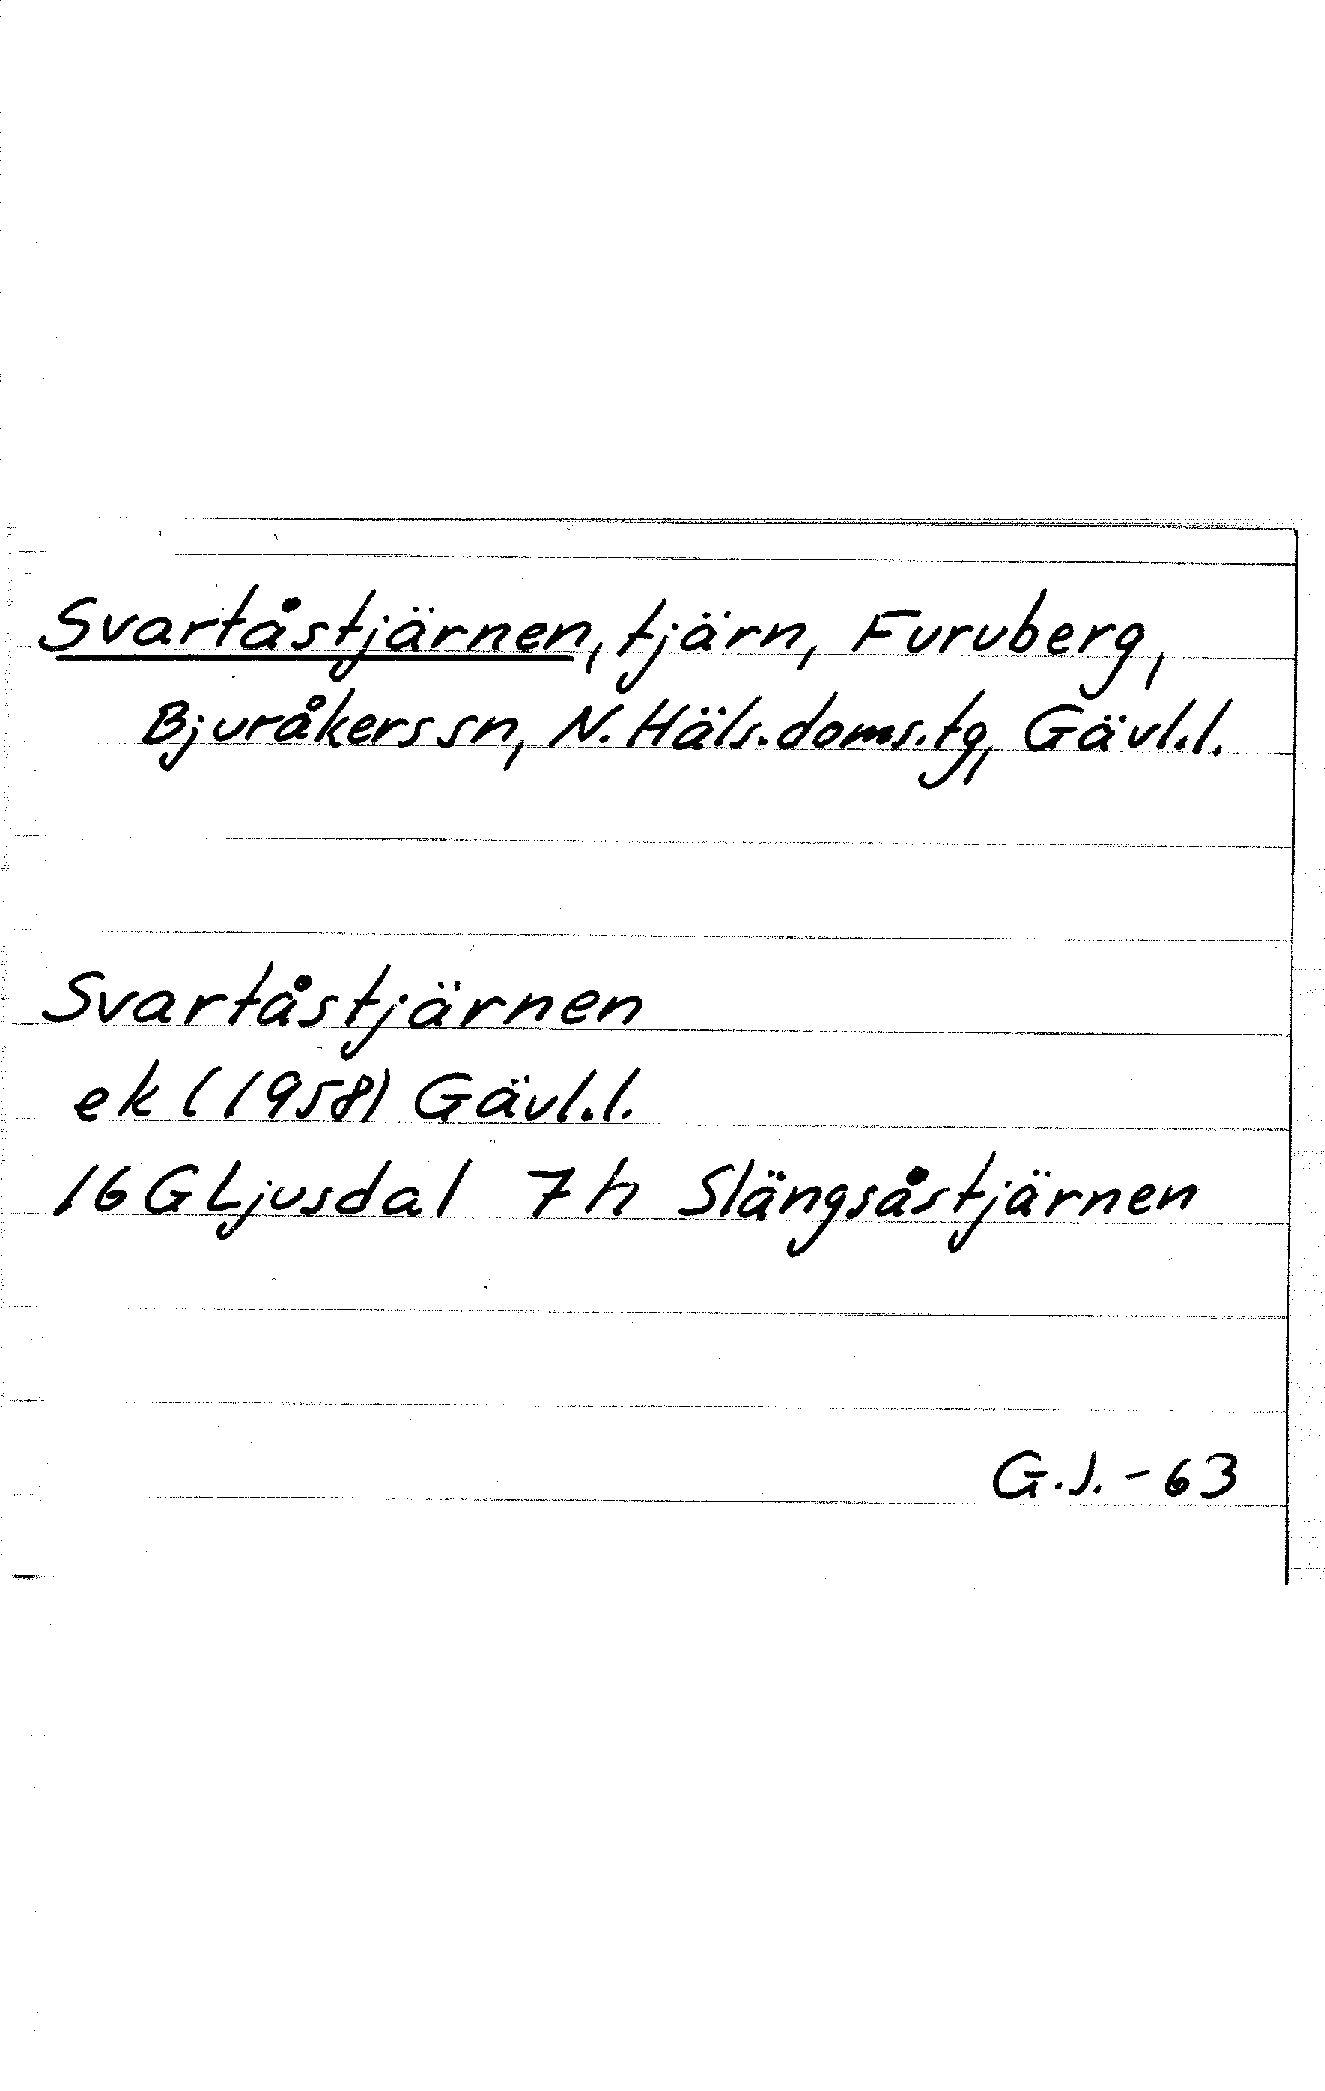 Svartåstjärnen, tjärn, Furuberg,
Bjuråkers sn, N. Häls. doms. tg, Gävl.l.
Svartåstjärnen
ek (1958) Gävl.l.
16 G Ljusdal 7 h Slängsåstjärnen
G.J. -63